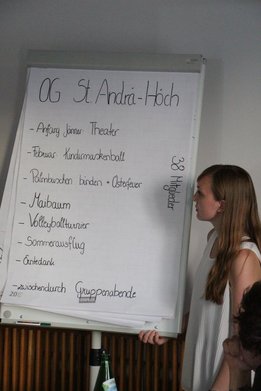 OG St. Andrä-Höch
- Anfang Jänner Theater
- Februar Kindermaskenball
- Palmbuschen binden + Osterfeuer
- Maibaum
- Volleyballturnier
- Sommerausflug
- Erntedank
- zwischendurch Gruppenabende
38 Mitglieder